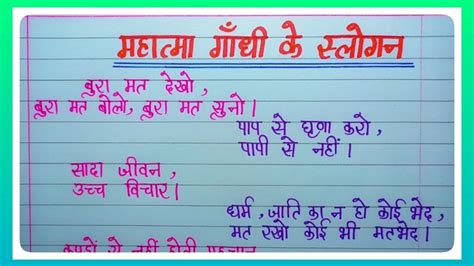 महात्मा गाँधी के स्लोगन
बुरा मत देखो,
बुरा मत बोलो, बुरा मत सुनो।
पाप से घृणा करो,
पापी से नहीं।
सादा जीवन,
उच्च विचार।
धर्म, जाति का न हो कोई भेद,
मत रखो कोई भी मतभेद।
कपड़ों से नहीं होती पहचान